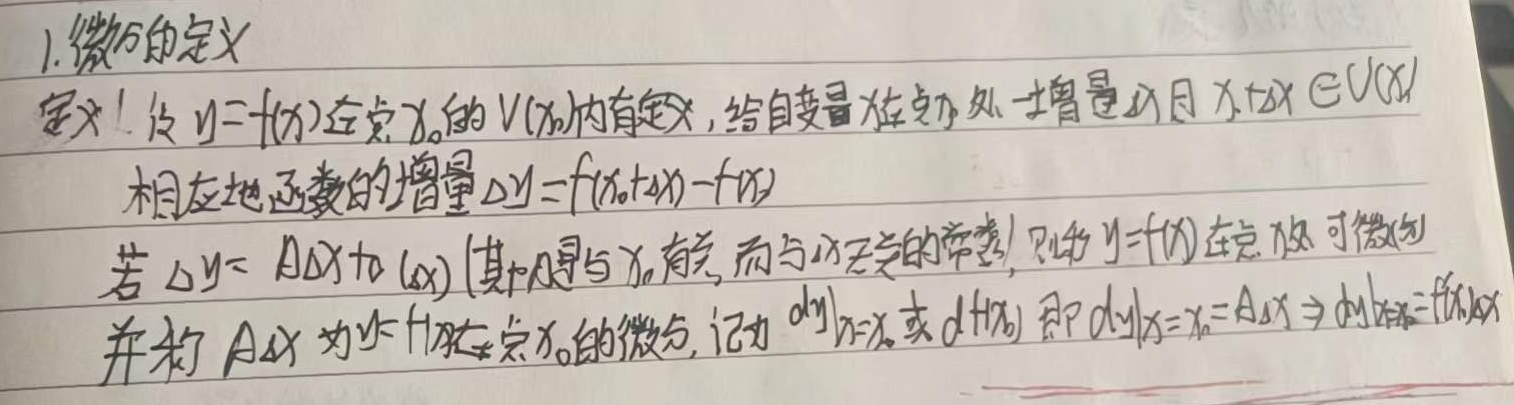 1.微分的定义
定义1 设 y=f(x)在点x₀的U(x₀)内有定义,给自变量x在点x₀处一增量Δx且 x₀+Δx∈U(x₀)
相应地函数的增量Δy=f(x₀+Δx)-f(x₀)
若 Δy= AΔx+o(Δx)(其中A是与x₀有关,而与Δx无关的常数),则称y=f(x)在点x₀处可微(分)
并称 AΔx 为y=f(x)在点x₀的微分,记为 dy|x=x₀ 或df(x₀) 即dy|x=x₀=AΔx⇒dy|x=x₀=f'(x₀)Δx